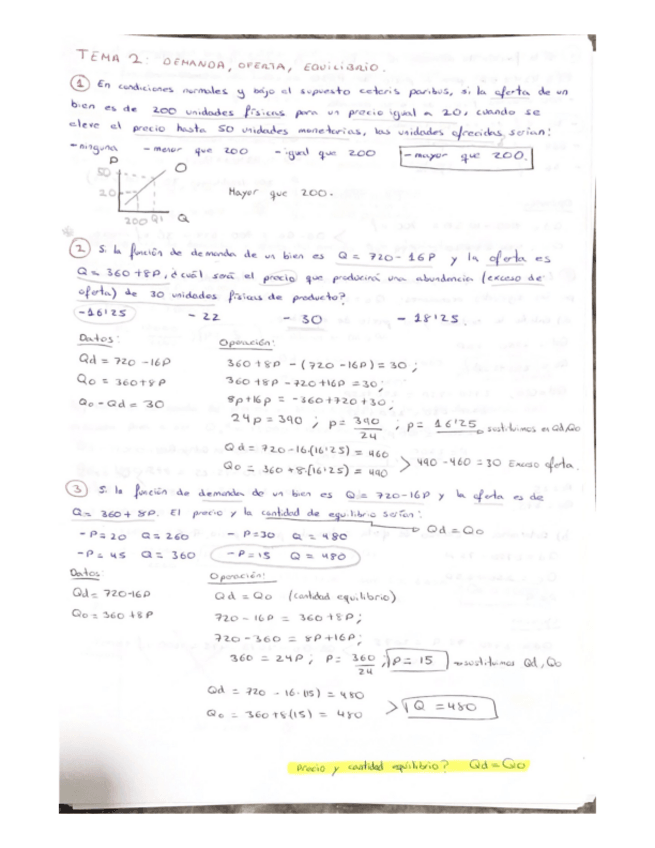 TEMA 2: DEMANDA, OFERTA, EQUILIBRIO.
① En condiciones normales y bajo el supuesto ceteris paribus, si la oferta de un
bien es de 200 unidades físicas para un precio igual a 20, cuando se
eleve el precio hasta 50 unidades monetarias, las unidades ofrecidas serían:
- ninguna - menor que 200 - igual que 200 - mayor que 200.
P
50
20
O
200 Q1 Q
Mayor que 200.
② Si la función de demanda de un bien es Q = 720 - 16P y la oferta es
Q = 360 + 8P, ¿cuál será el precio que producirá una abundancia (exceso de
oferta) de 30 unidades físicas de producto?
- 16'25 - 22 - 30 - 18'125
Datos: Operación:
Qd = 720 - 16P 360 + 8P - (720 - 16P) = 30;
Qo = 360 + 8P 360 + 8P - 720 + 16P = 30;
Qo - Qd = 30 8P + 16P = -360 + 720 + 30;
24P = 390 ; P = 390/24 ; P = 16'25 → sustituimos en Qd, Qo
Qd = 720 - 16·(16'25) = 460
Qo = 360 + 8·(16'25) = 490 > 490 - 460 = 30 Exceso oferta.
③ Si la función de demanda de un bien es Q = 720 - 16P y la oferta es de
Q = 360 + 8P. El precio y la cantidad de equilibrio serían: → Qd = Qo
- P = 20 Q = 260 - P = 30 Q = 480
- P = 45 Q = 360 - P = 15 Q = 480
Datos: Operación:
Qd = 720 - 16P Qd = Qo (cantidad equilibrio)
Qo = 360 + 8P 720 - 16P = 360 + 8P;
720 - 360 = 8P + 16P;
360 = 24P ; P = 360/24 ; P = 15 → sustituimos Qd, Qo
Qd = 720 - 16·(15) = 480
Qo = 360 + 8(15) = 480 > Q = 480
precio y cantidad equilibrio? Qd = Qo